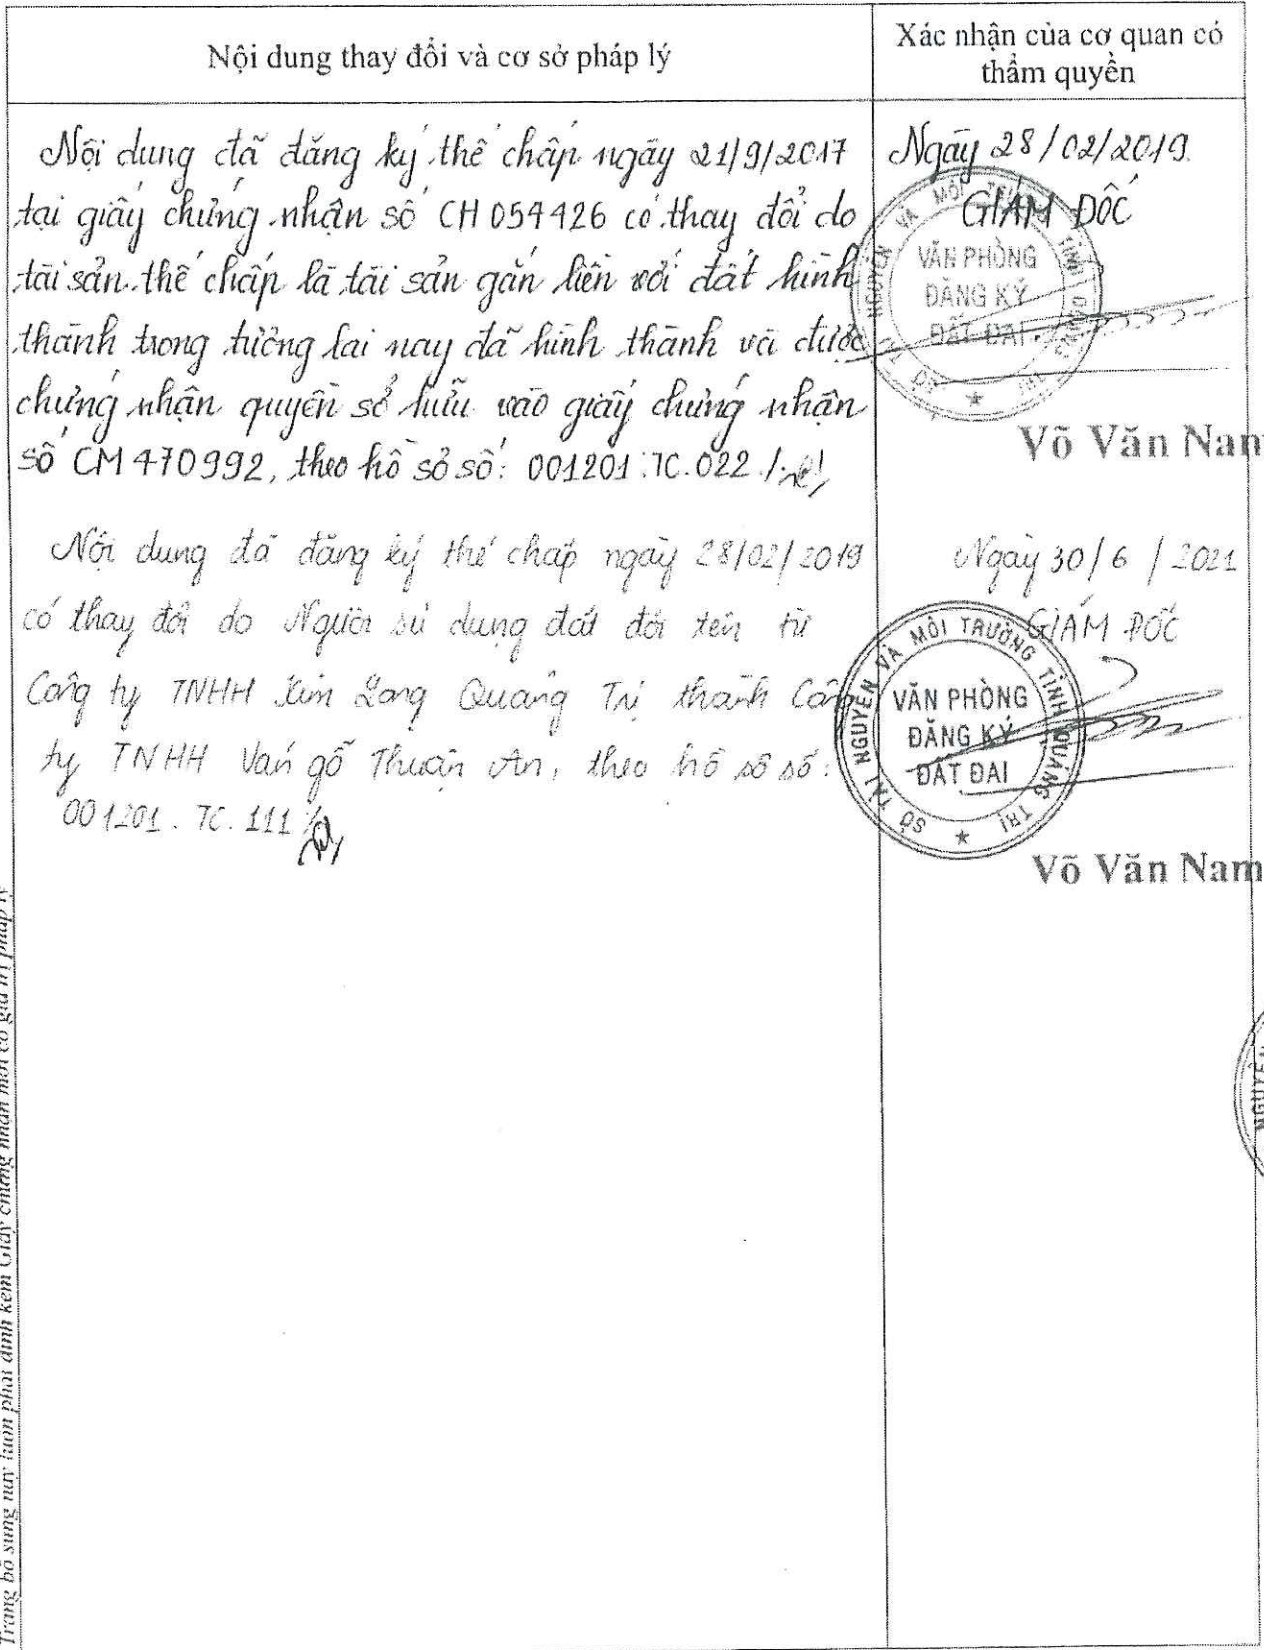 Nội dung thay đổi và cơ sở pháp lý
Xác nhận của cơ quan có
thẩm quyền
Nội dung đã đăng ký thế chấp ngày 21/9/2017
tại giấy chứng nhận số CH 054426 có thay đổi do
tài sản thế chấp là tài sản gắn liền với đất hình
thành trong tương lai nay đã hình thành và được
chứng nhận quyền sở hữu vào giấy chứng nhận
số CM 470992, theo hồ sơ số: 001201.TC.022
Ngày 28/02/2019
GIÁM ĐỐC
VĂN PHÒNG
ĐĂNG KÝ
ĐẤT ĐAI
Võ Văn Nam
Nội dung đã đăng ký thế chấp ngày 28/02/2019
có thay đổi do Người sử dụng đất đổi tên từ
Công ty TNHH Kim Long Quảng Trị thành Công
ty TNHH Ván gỗ Thuận An, theo hồ sơ số:
001201.TC.111
Ngày 30/6/2021
GIÁM ĐỐC
SỞ TÀI NGUYÊN VÀ MÔI TRƯỜNG TỈNH QUẢNG TRỊ
VĂN PHÒNG
ĐĂNG KÝ
ĐẤT ĐAI
Võ Văn Nam
NGUYÊN
Trang bổ sung này luôn phải đính kèm Giấy chứng nhận mới có giá trị pháp lý